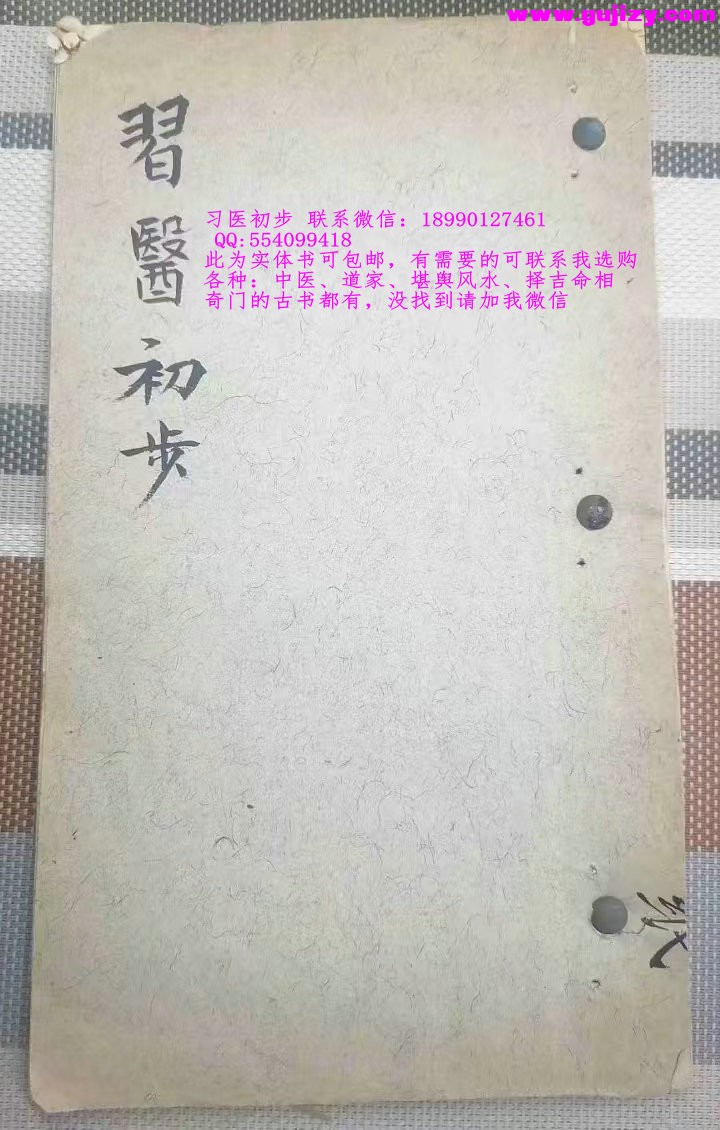 www.gujizy.com
習醫初步
习医初步 联系微信：18990127461
QQ:554099418
此为实体书可包邮，有需要的可联系我选购
各种：中医、道家、堪舆风水、择吉命相
奇门的古书都有，没找到请加我微信